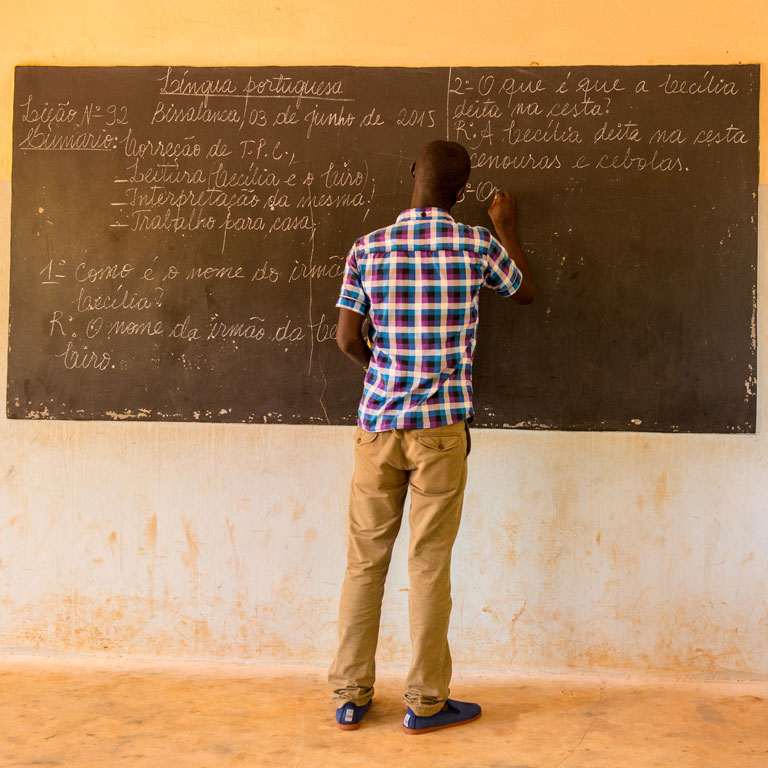 Língua portuguesa
Lição Nº 92 Binsalanca, 03 de junho de 2015
Sumário: Correção de T.P.C.,
– Leitura (Cecília e o Ciro)
– Interpretação da mesma;
– Trabalho para casa.
1º Como é o nome do irmã
Cecília?
R: O nome da irmão da
Ciro.
2º O que é que a Cecília
deita na cesta?
R: A Cecília deita na cesta
cenouras e cebolas.